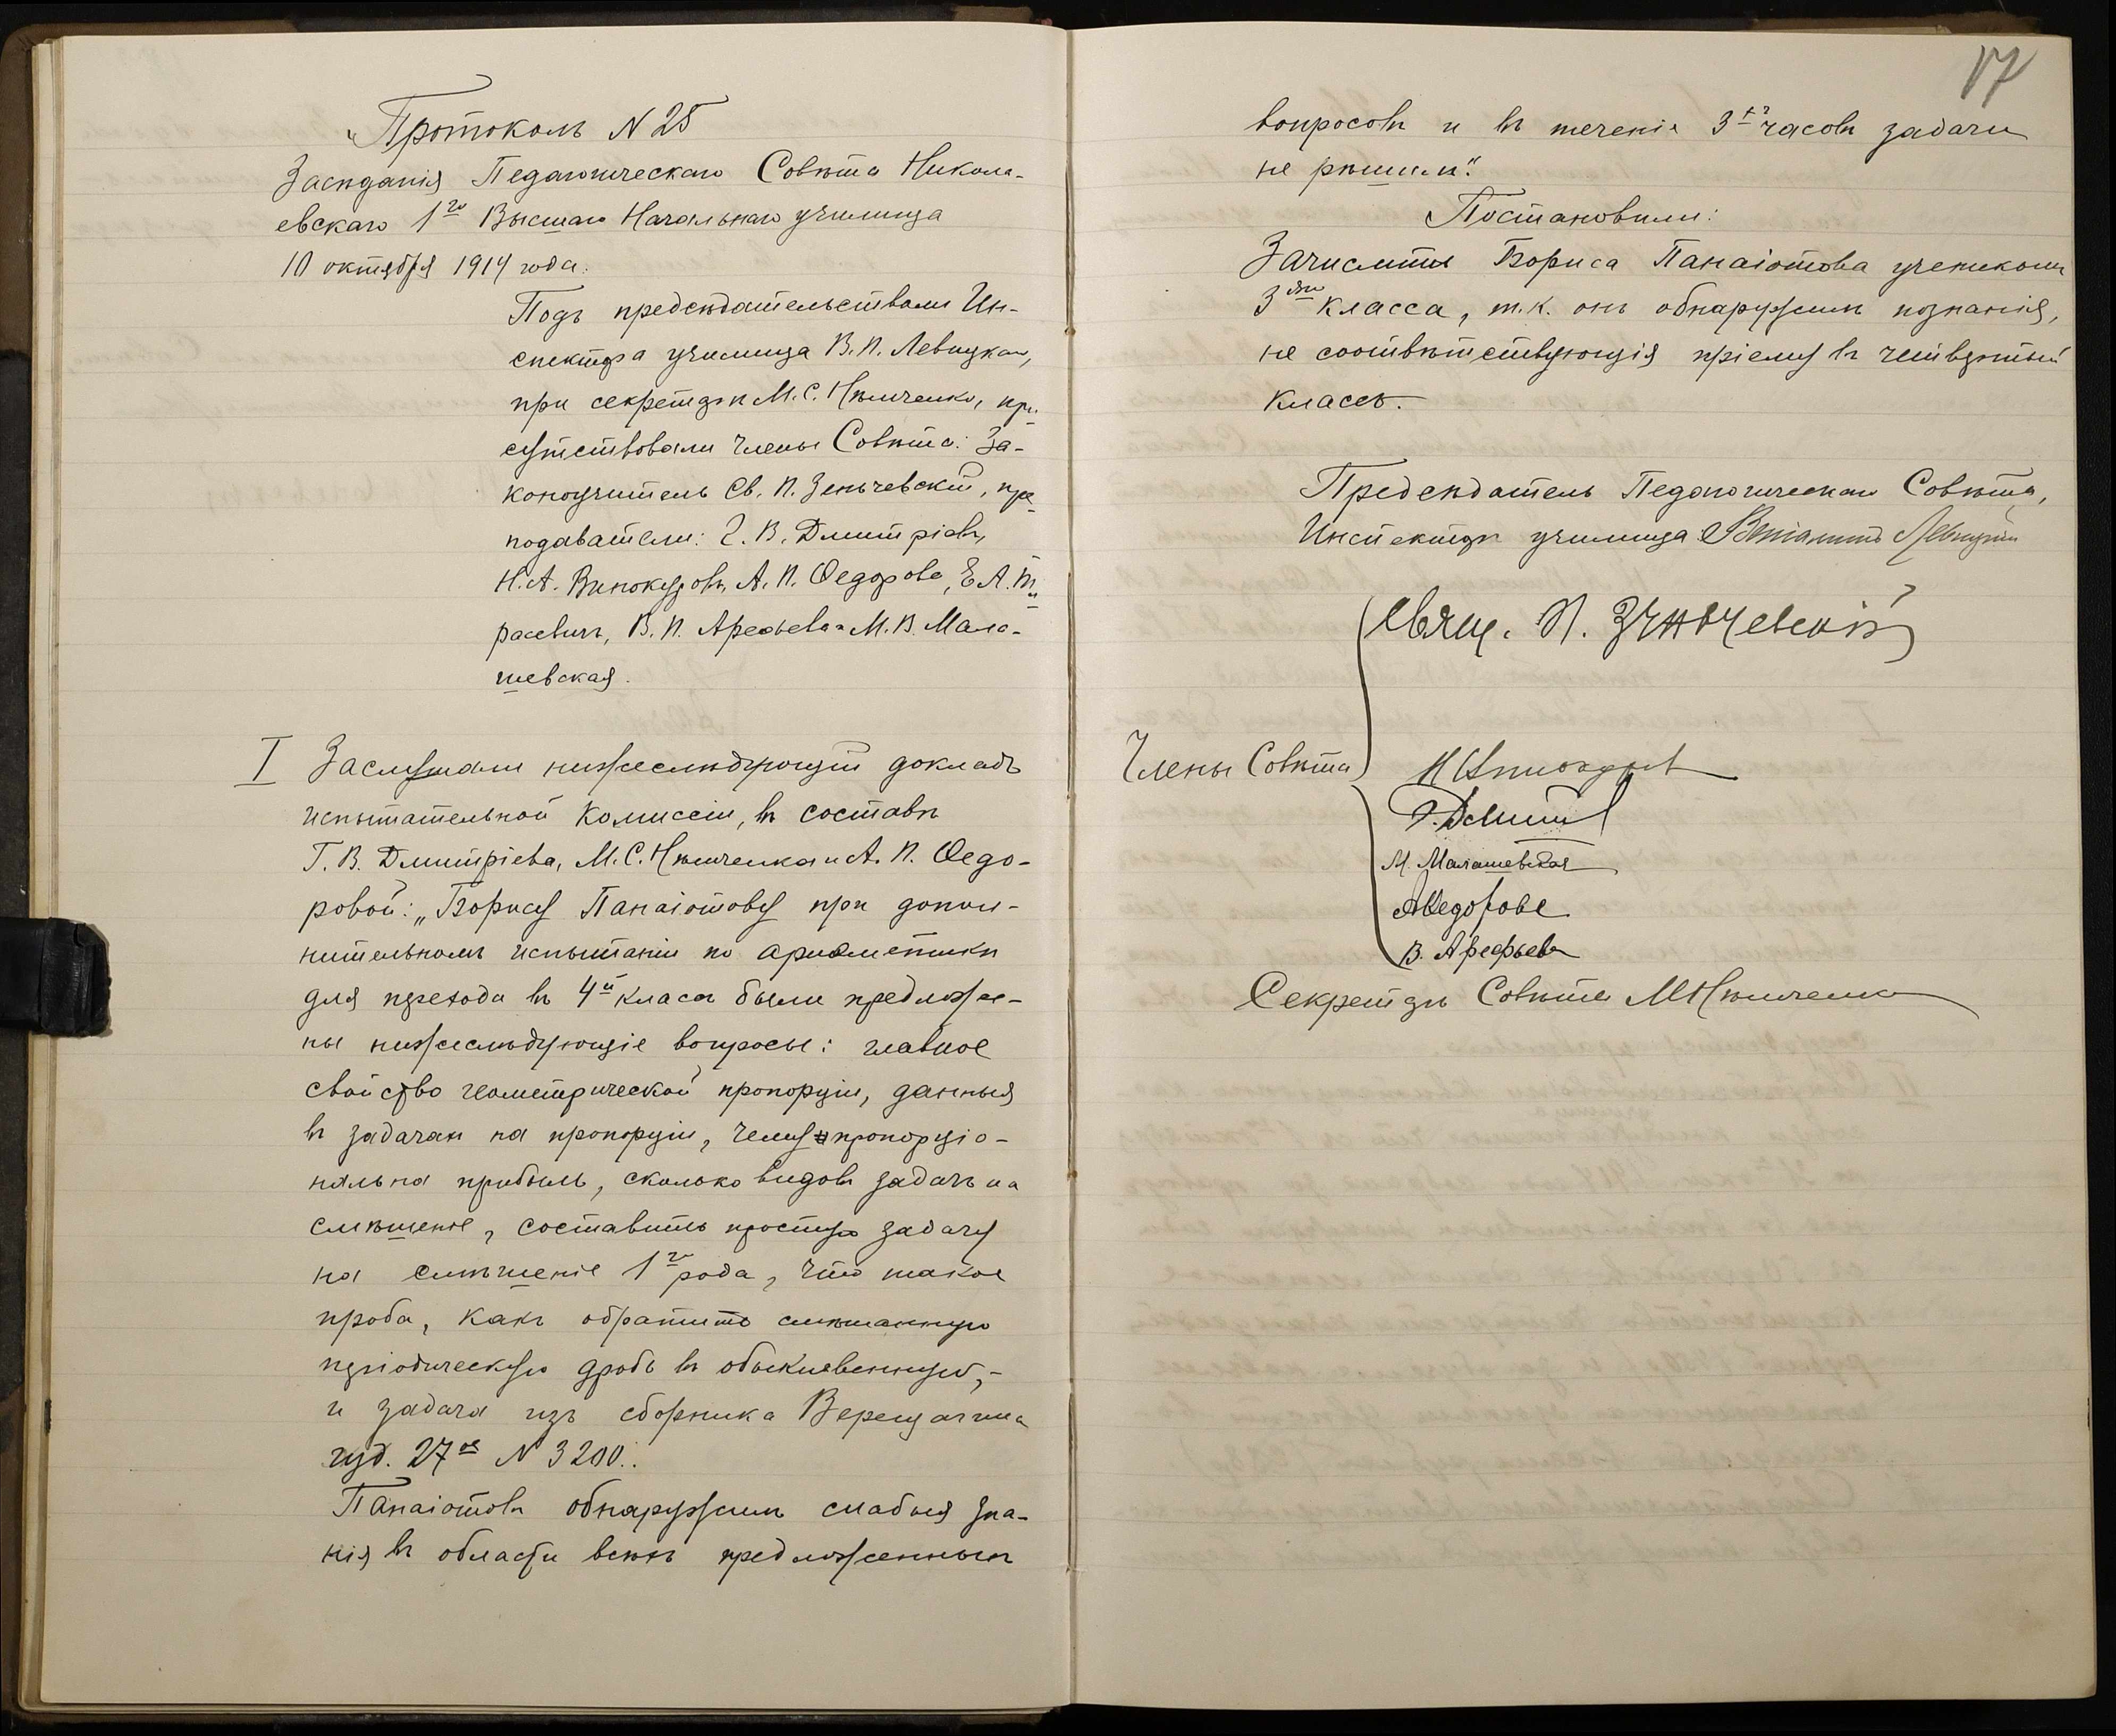 17
Протоколъ N 25
Засѣданія Педагогическаго Совѣта Никола-
евскаго 1го Высшаго Начальнаго училища
10 октября 1914 года.
Подъ предсѣдательствомъ Ин-
спектора училища В. П. Левицкаго,
при секретарѣ М. С. Нѣмченко, при-
сутствовали Члены Совѣта: За-
коноучитель Св. П. Зеньчевскій, пре-
подаватели: Г. В. Дмитріевъ,
Н. А. Винокуровъ, А. П. Ѳедорова, Е. А.
расевичъ, В. П. Арефьева и М. В. Мала-
шевская.
I Заслушали нижеслѣдующій докладъ
испытательной Комиссіи, въ составѣ
Г. В. Дмитріева, М. С. Нѣмченка и А. П. Ѳедо-
ровой: „Борису Панаіотову при допол-
нительномъ испытаніи по ариѳметикѣ
для перехода въ 4й классъ были предложе-
ны нижеслѣдующіе вопросы: главное
свойство геометрической пропорціи, данныя
въ задачахъ на пропорціи, чему пропорціо-
нальна прибыль, сколько видовъ задачъ на
смѣшеніе, составить простую задачу
на смѣшеніе 1го рода, что такое
проба, какъ обратить смѣшанную
періодическую дробь въ обыкновенную,-
и задача изъ сборника Верещагина
изд. 27ое N 3200.
Панаіотовъ обнаружилъ слабыя зна-
нія въ области всѣхъ предложенныхъ
вопросовъ и въ теченіе 3хъ часовъ задачи
не рѣшилъ."
Постановили:
Зачислить Бориса Панаіотова ученикомъ
3яго класса, т. к. онъ обнаружилъ познанія,
не соотвѣтствующія пріему въ четвертый
классъ.
Предсѣдатель Педагогическаго Совѣта,
Инспекторъ училища Веніаминъ Левицкій
Свящ. П. Зеньчевскій
Члены Совѣта
Н Винокуровъ
Г. Дмит
М. Малашевская
АѲедорова
В. Арефьева
Секретарь Совѣта МНѣмченко